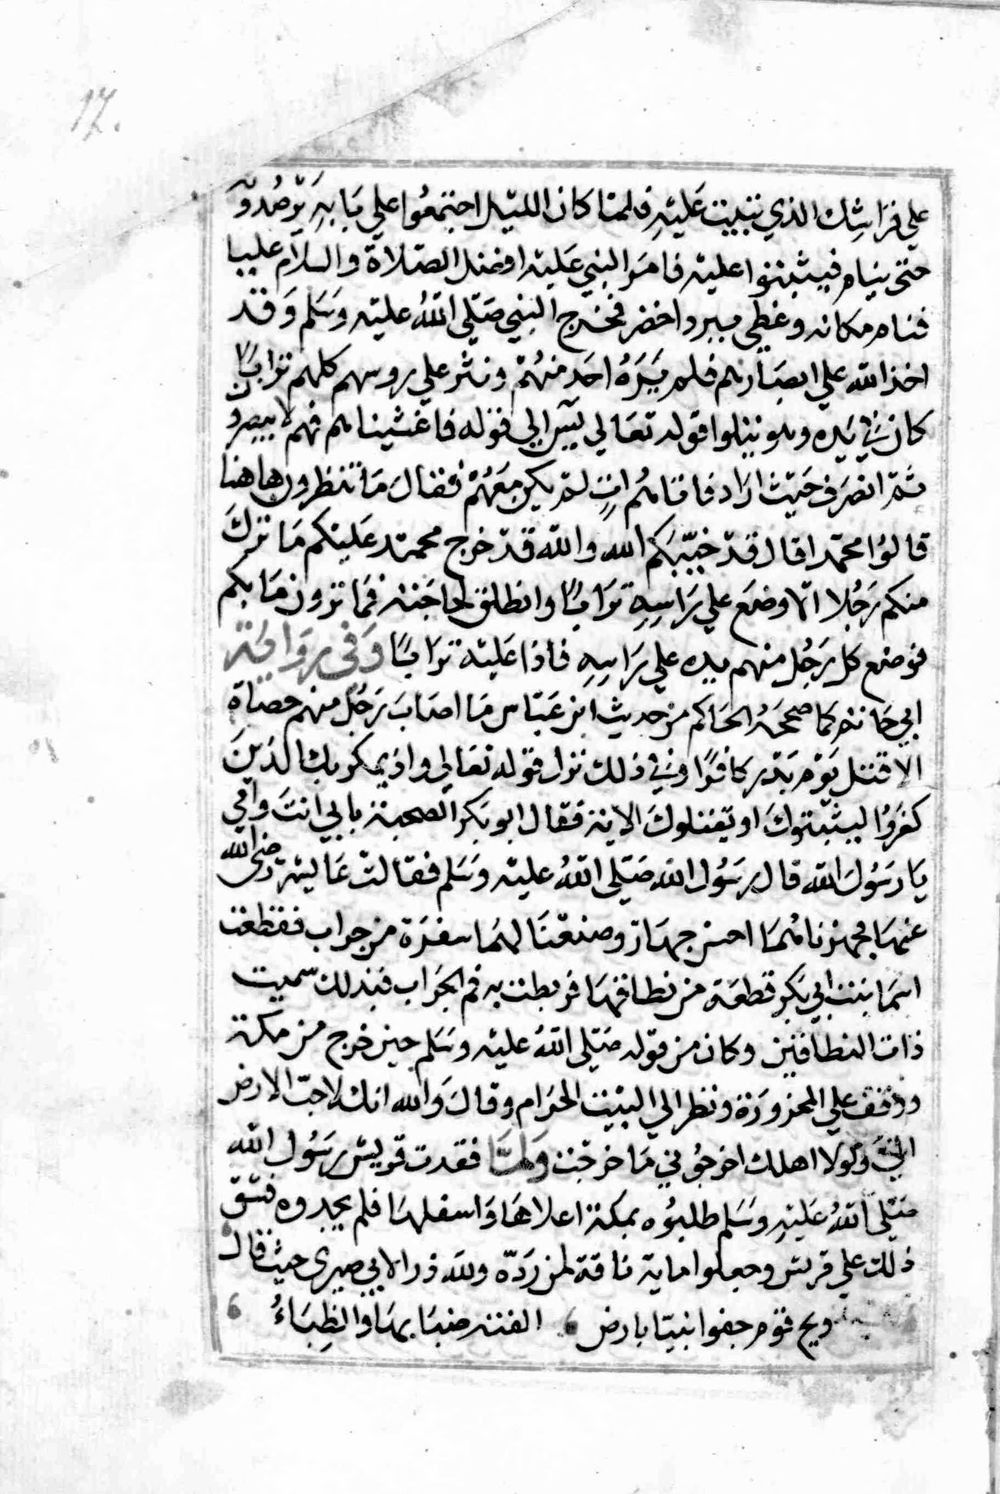 17.
علي فراشك الذي تبيت عليه فلما كان الليل اجتمعوا علي بابه يرصدونه
حتى ينام فيثبتوا عليه فامر النبي عليه افضل الصلاة والسلام عليا
فنام مكانه وغطي ببرد اخضر فخرج النبي صلى الله عليه وسلم وقد
اخذ الله علي ابصارهم فلم يره احد منهم ونثر علي روسهم كلهم ترابا
كان في يده وهو يتلوا قوله تعالي يس الي قوله فاغشيناهم فهم لا يبصرون
ثم انصرف حيث اراد فاتاهم ات لم يكن معهم فقال ما تنتظرون هاهنا
قالوا محمدا قال قد خيبكم الله والله قد خرج محمد عليكم ما ترك
منكم رجلا الا وضع علي راسه ترابا وانطلق لحاجته فما ترون ما بكم
فوضع كل رجل منهم يده علي راسه فاذا عليه ترابا وفي رواية
ابي حاتم كما صححه الحاكم من حديث ابن عباس ما اصاب رجل منهم حصاة
الا قتل يوم بدر كافرا وفي ذلك نزل قوله تعالي واذ يمكر بك الذين
كفروا ليثبتوك او يقتلوك الاية فقال ابو بكر الصحبة بابي انت وامي
يا رسول الله قال رسول الله صلى الله عليه وسلم فقالت عايشة رضى الله
عنها فجهزناهما احسن جهاز وصنعنا لهما سفرة من جراب فقطعت
اسما بنت ابي بكر قطعة من نطاقها فربطت به فم الجراب فبذلك سميت
ذات النطاقين وكان من قوله صلى الله عليه وسلم حين خرج من مكة
ووقف علي الحزورة ونظر الي البيت الحرام وقال والله انك لاحب الارض
الي ولولا اهلك اخرجوني ما خرجت ولما فقدت قريش رسول الله
صلى الله عليه وسلم طلبوه بمكة اعلاها واسفلها فلم يجدوه فشق
ذلك علي قريش وجعلوا ماية ناقة لمن رده ولله در الابي صيرى حيث قال
ويح قوم جفوا نبيا بارض الفته ضبابها والظباء